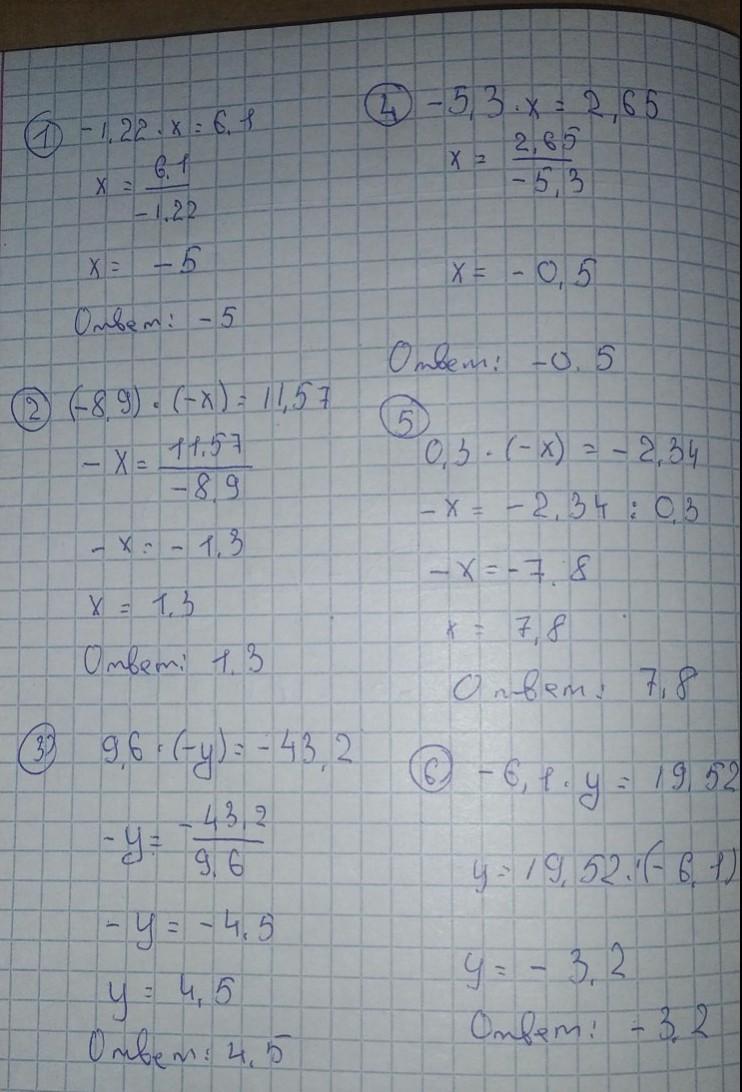 1 -1,22 · x = 6,1
x = 6,1 / -1,22
x = -5
Ответ: -5
2 (-8,9) · (-x) = 11,57
-x = 11,57 / -8,9
-x = -1,3
x = 1,3
Ответ: 1,3
3 9,6 · (-y) = -43,2
-y = -43,2 / 9,6
-y = -4,5
y = 4,5
Ответ: 4,5
4 -5,3 · x = 2,65
x = 2,65 / -5,3
x = -0,5
Ответ: -0,5
5
0,3 · (-x) = -2,34
-x = -2,34 : 0,3
-x = -7,8
x = 7,8
Ответ: 7,8
6 -6,1 · y = 19,52
y = 19,52 : (-6,1)
y = -3,2
Ответ: -3,2